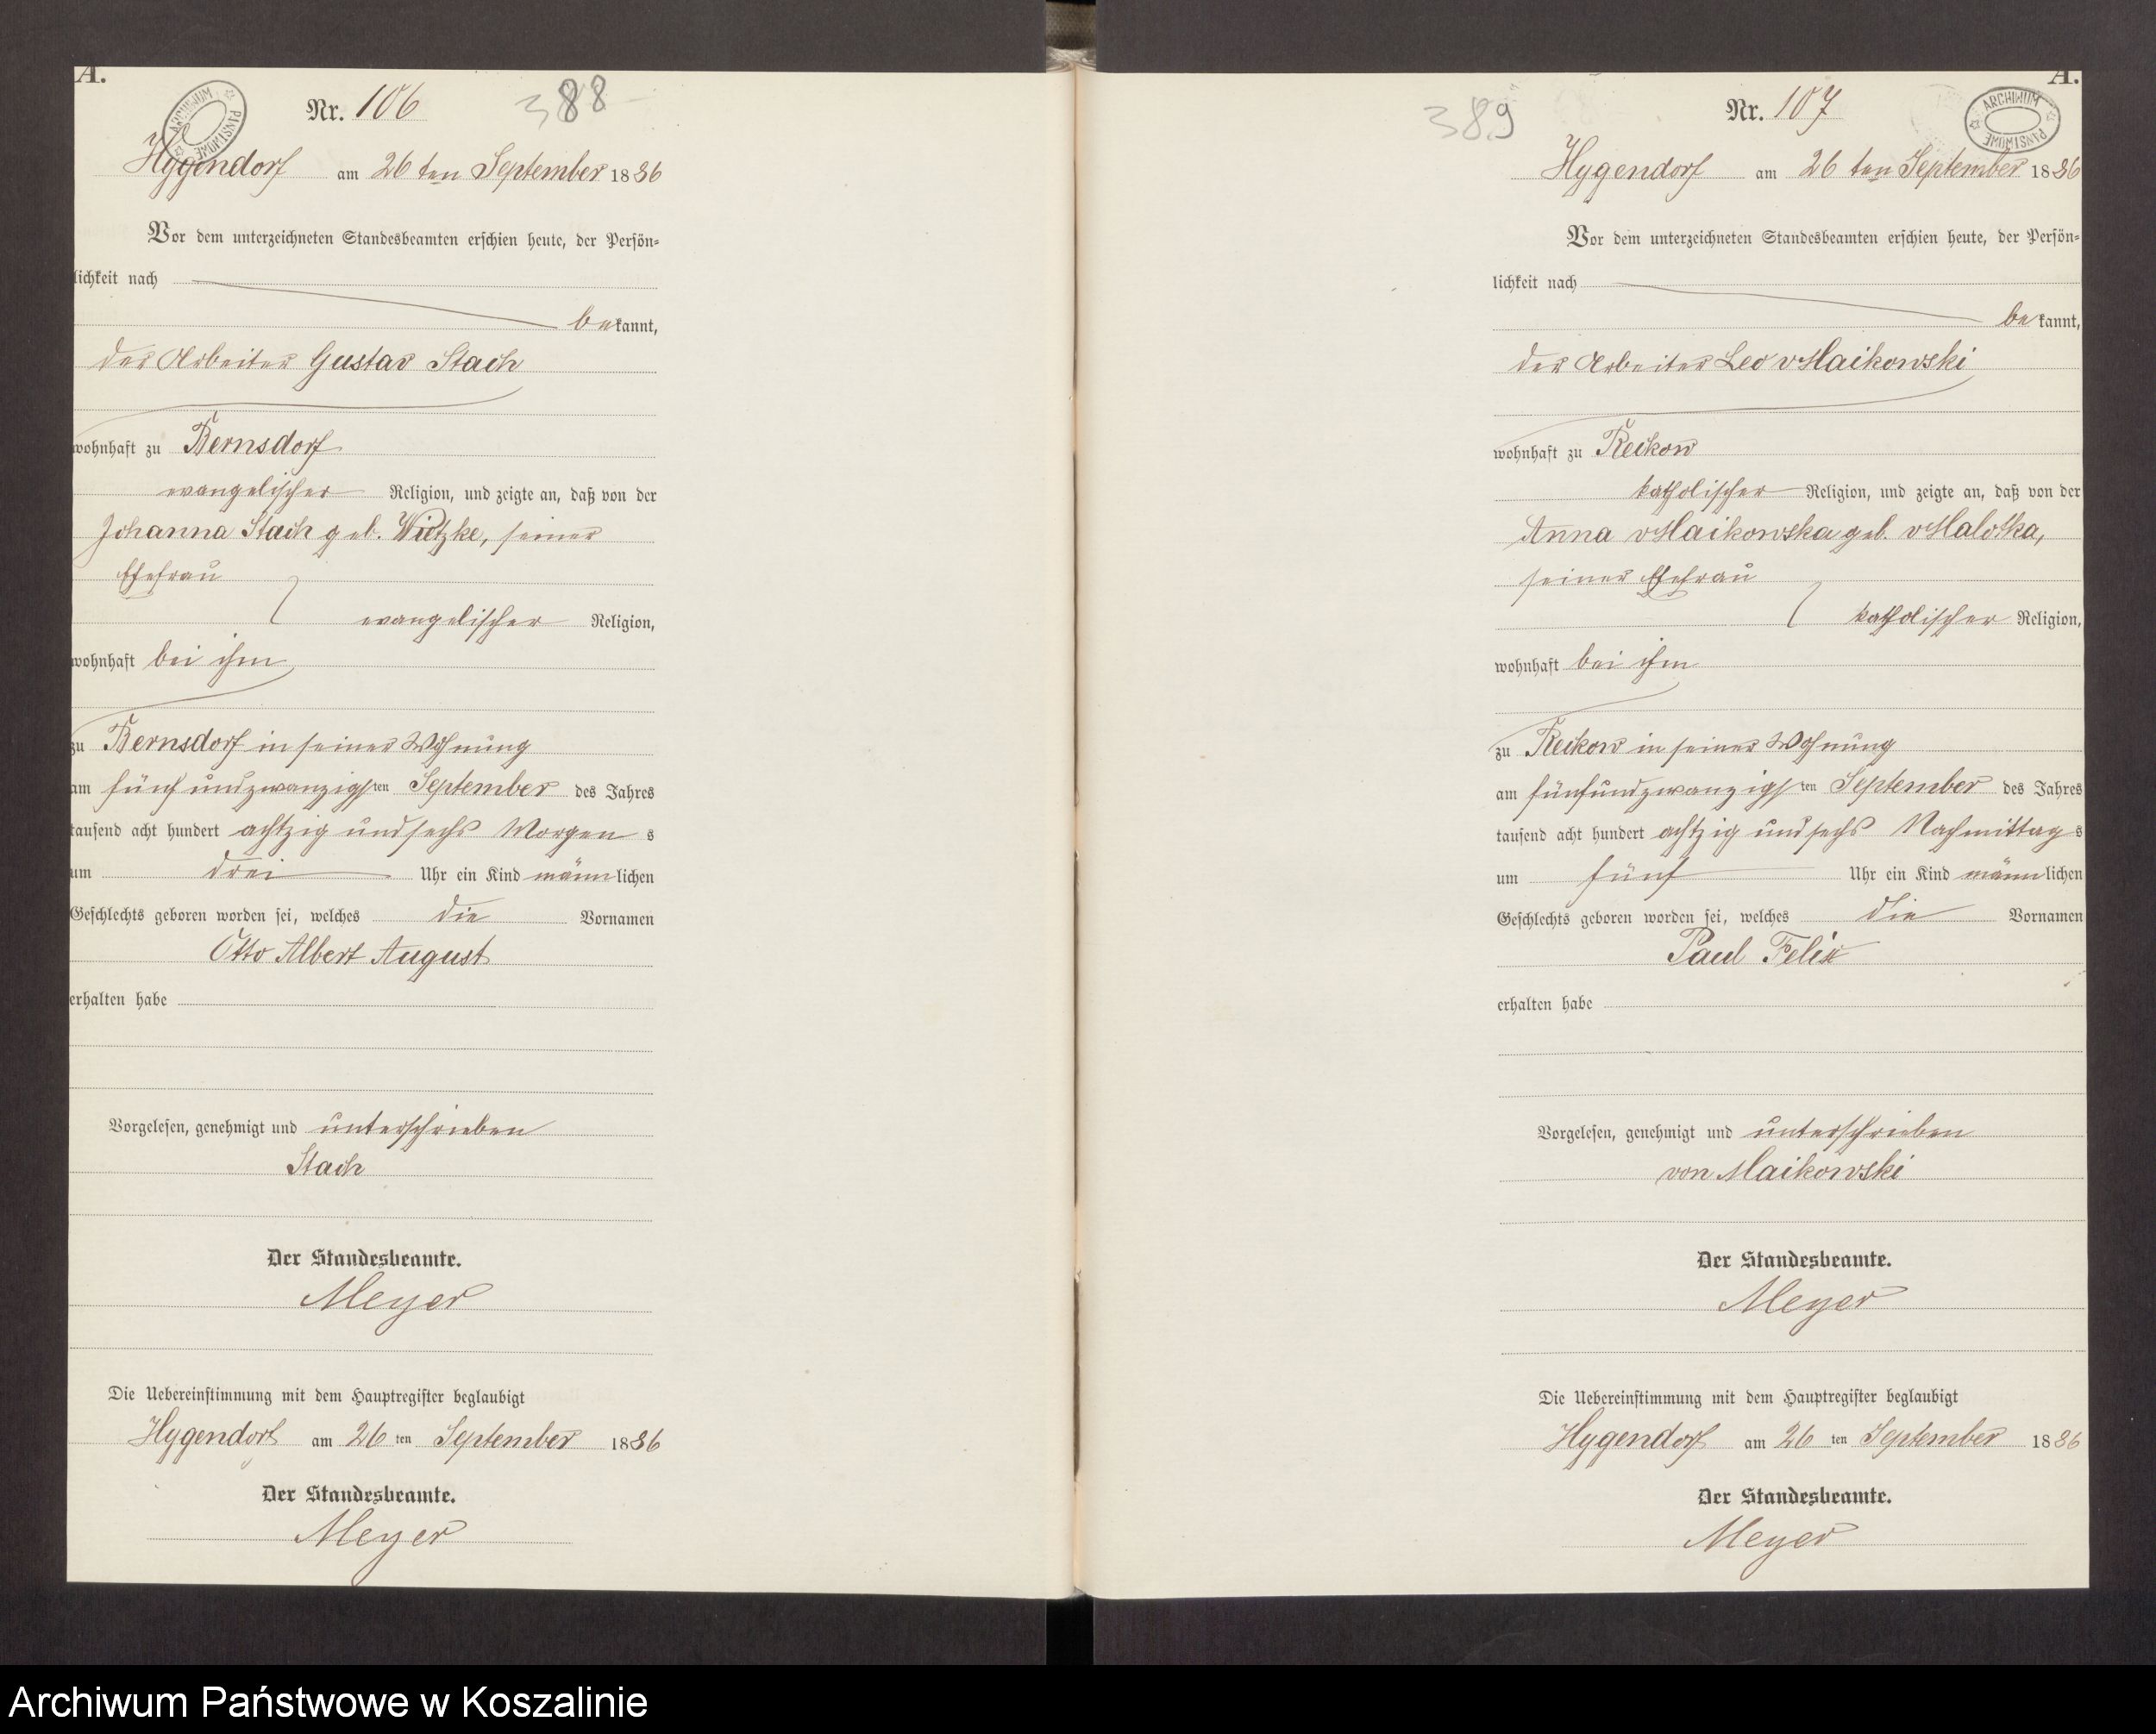 A.
ARCHIWUM PAŃSTWOWE
Nr. 106
388
Hygendorf am 26 ten September 1886
Vor dem unterzeichneten Standesbeamten erschien heute, der Persön-
lichkeit nach
bekannt,
der Arbeiter Gustav Stach
wohnhaft zu Bernsdorf
evangelischer Religion, und zeigte an, daß von der
Johanna Stach geb. Wietzke, seiner
Ehefrau
evangelischer Religion,
wohnhaft bei ihm
zu Bernsdorf in seiner Wohnung
am fünfundzwanzigsten September des Jahres
tausend acht hundert achtzig und sechs Morgens
um drei Uhr ein Kind männlichen
Geschlechts geboren worden sei, welches die Vornamen
Otto Albert August
erhalten habe
Vorgelesen, genehmigt und unterschrieben
Stach
Der Standesbeamte.
Meyer
Die Uebereinstimmung mit dem Hauptregister beglaubigt
Hygendorf am 26 ten September 1886
Der Standesbeamte.
Meyer
A.
389
Nr. 107
ARCHIWUM PAŃSTWOWE
Hygendorf am 26 ten September 1886
Vor dem unterzeichneten Standesbeamten erschien heute, der Persön-
lichkeit nach
bekannt,
der Arbeiter Leo v Maikowski
wohnhaft zu Reckow
katholischer Religion, und zeigte an, daß von der
Anna v Maikowska geb. v Malotka,
seiner Ehefrau
katholischer Religion,
wohnhaft bei ihm
zu Reckow in seiner Wohnung
am fünfundzwanzigsten September des Jahres
tausend acht hundert achtzig und sechs Nachmittags
um fünf Uhr ein Kind männlichen
Geschlechts geboren worden sei, welches die Vornamen
Paul Felix
erhalten habe
Vorgelesen, genehmigt und unterschrieben
von Maikowski
Der Standesbeamte.
Meyer
Die Uebereinstimmung mit dem Hauptregister beglaubigt
Hygendorf am 26 ten September 1886
Der Standesbeamte.
Meyer
Archiwum Państwowe w Koszalinie